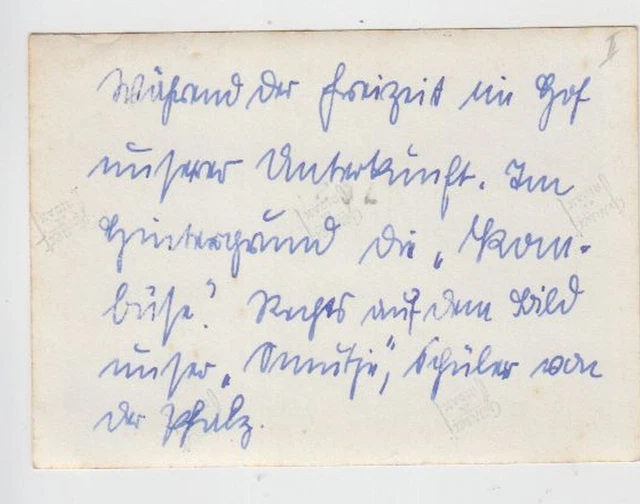 II
Während der Freizeit im Hof
unserer Unterkunft. Im
Hintergrund die „Kom-
büse“. Rechts auf dem Bild
unser „Smutje“, Schüler von
der Pfalz.